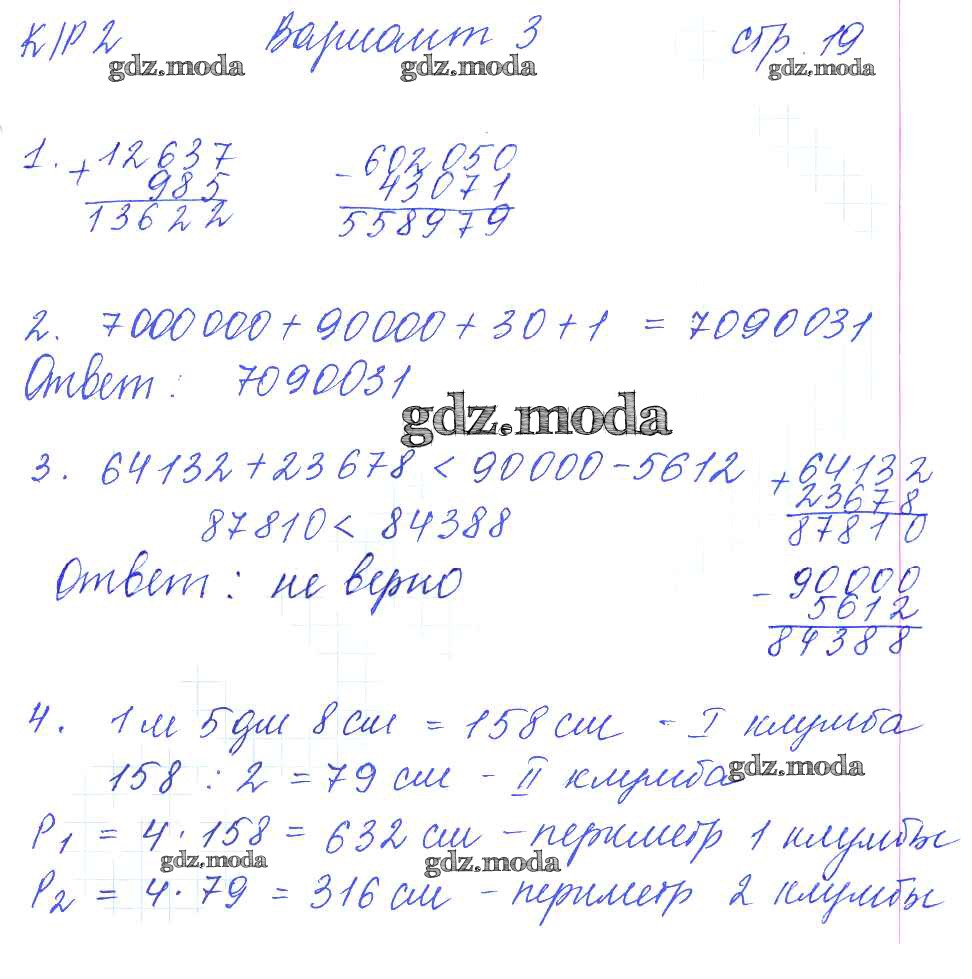 К/Р 2 Вариант 3 стр. 19
gdz.moda gdz.moda gdz.moda
1. + 12637 - 602 050
985 43071
13622 558979
2. 7000000 + 90000 + 30 + 1 = 7090031
Ответ: 7090031
gdz.moda
3. 64132 + 23678 < 90000 - 5612 + 64132
23678
87810 < 84388 87810
Ответ: не верно - 90000
5612
84388
4. 1 м 5 дм 8 см = 158 см - I клумба
158 : 2 = 79 см - II клумба
gdz.moda
P1 = 4 · 158 = 632 см - периметр 1 клумбы
gdz.moda gdz.moda
P2 = 4 · 79 = 316 см - периметр 2 клумбы